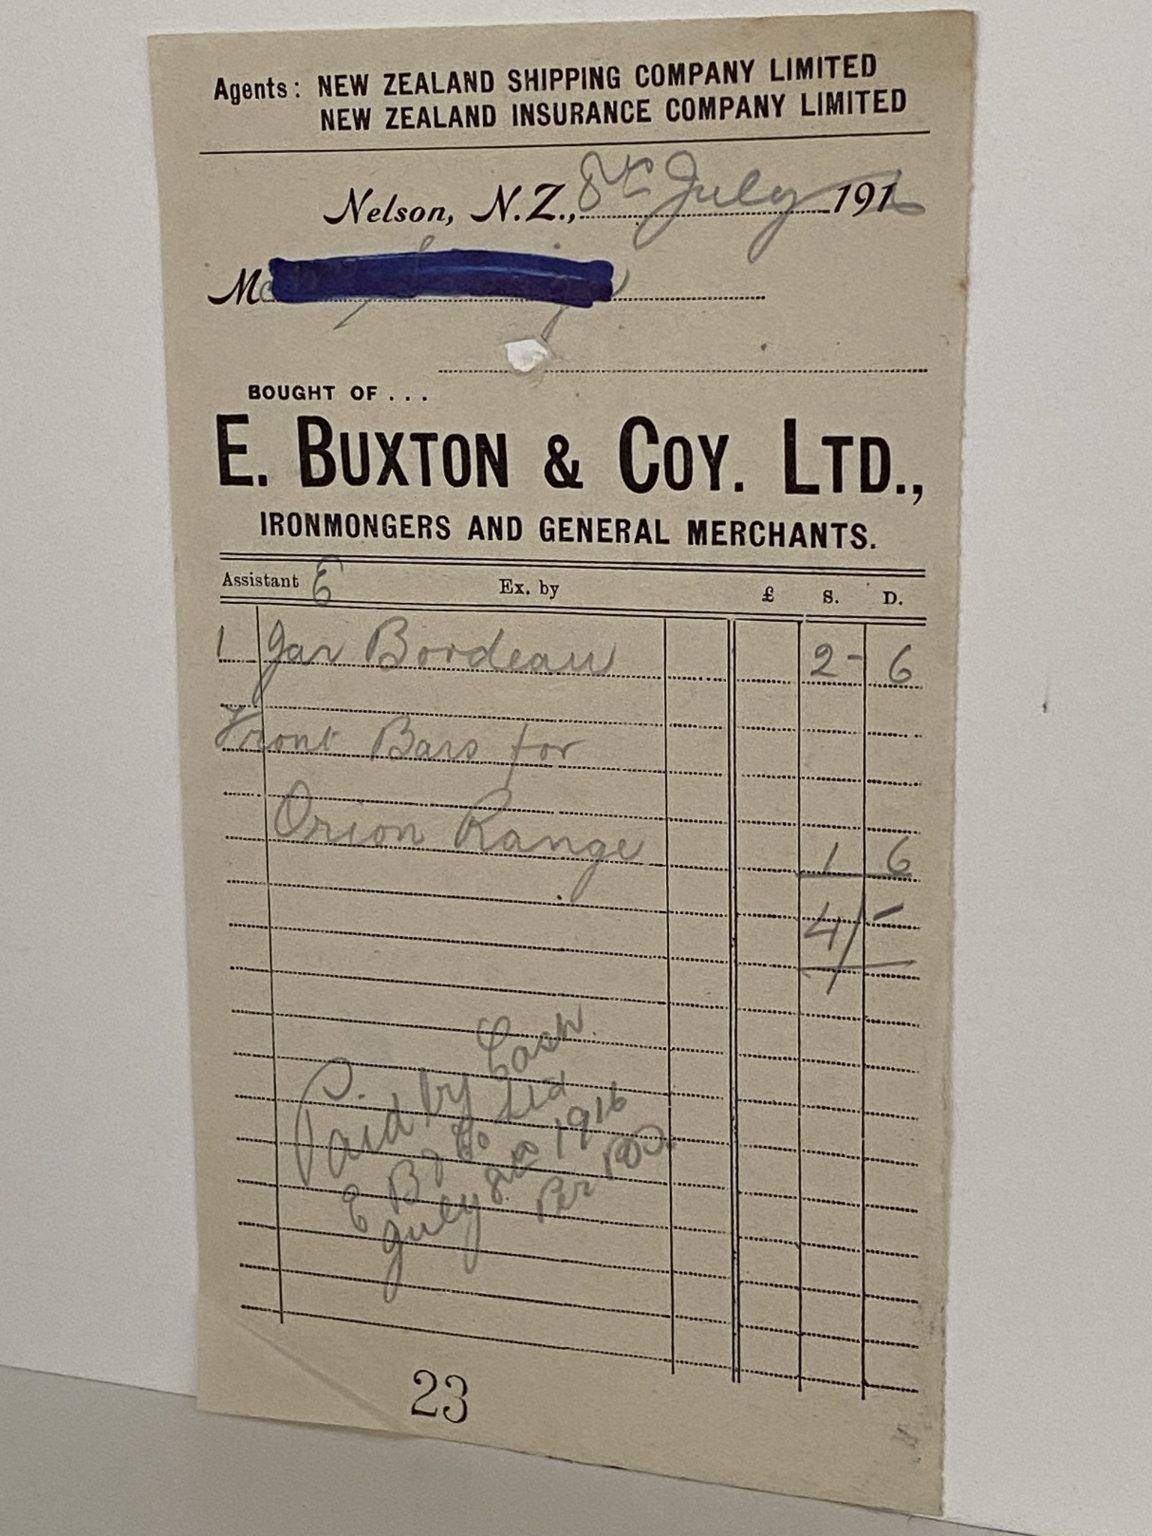 Agents: NEW ZEALAND SHIPPING COMPANY LIMITED
NEW ZEALAND INSURANCE COMPANY LIMITED
Nelson, N.Z., 8th July 1916
M
BOUGHT OF . . .
E. BUXTON & COY. LTD.,
IRONMONGERS AND GENERAL MERCHANTS.
Assistant E Ex. by £ S. D.
1 Jar Bordeau 2 - 6
Front Bars for
Orion Range 1 6
4/-
Paid by Cash
E B & Co Ltd
July 8th 1916
Per
23